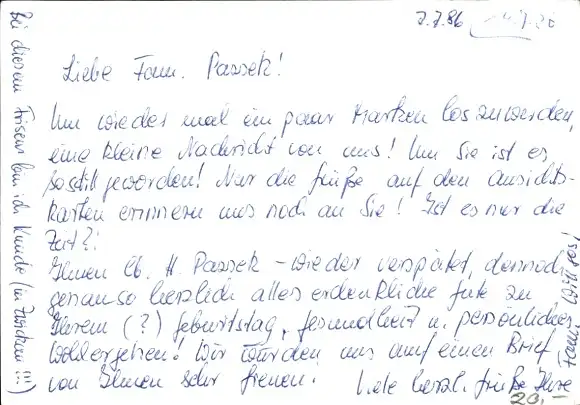 7.7.86
Liebe Fam. Passek!
Um wieder mal ein paar Marken loszuwerden,
eine kleine Nachricht von uns! Um Sie ist es
so still geworden! Nur die Grüße auf den Ansichts-
karten erinnern uns noch an Sie! Ist es nur die
Zeit?!
Ihnen lb. H. Passek - wieder verspätet, dennoch
genau so herzlich alles erdenkliche Gute zu
Ihrem (?) Geburtstag, Gesundheit u. persönliches
Wohlergehen! Wir würden uns auf einen Brief
von Ihnen sehr freuen. Viele herzl. Grüße Ihre
Fam.
20,-
Bei diesem Friseur bin ich Kunde (in Zwickau!!!)